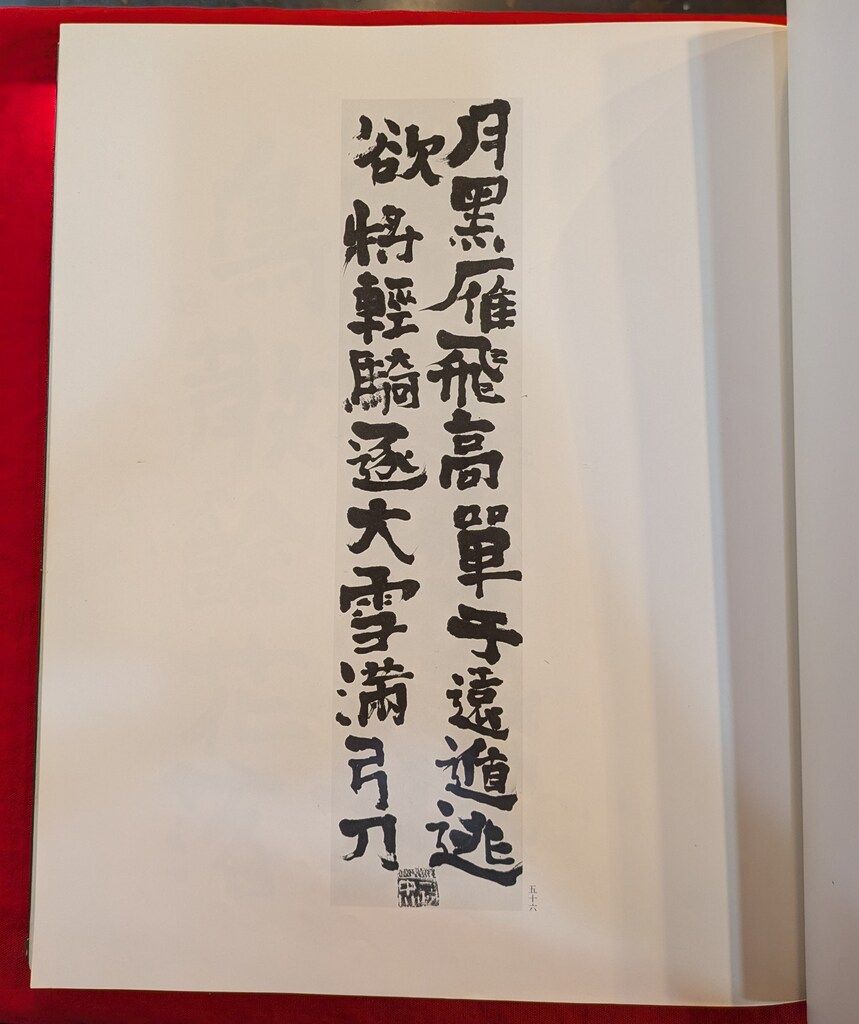 月黑雁飛高單于遠遁逃
欲將輕騎逐大雪滿弓刀
五十六